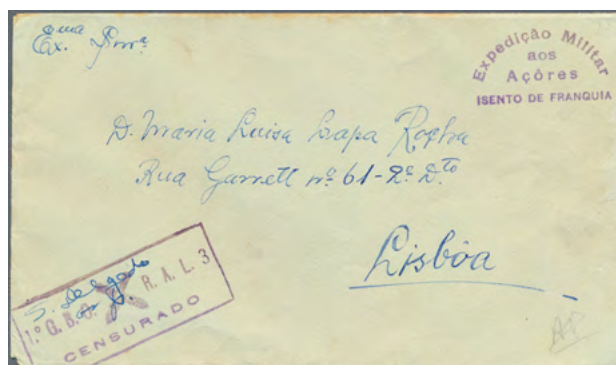 Exma
Ex. Snra
Expedição Militar
aos
Açôres
ISENTO DE FRANQUIA
D. Maria Luisa Lapa Rocha
Rua Garrett nº 61-2º Dto
Lisbôa
S. Delgado
1.º G. B. O. R. A. L. 3
CENSURADO